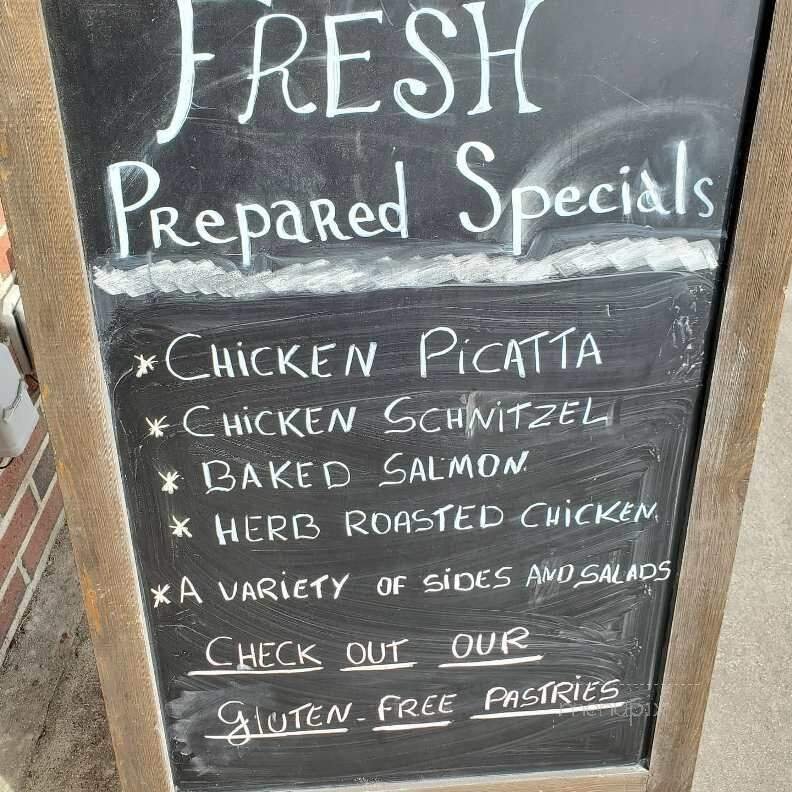 FRESH
PRepaRed Specials
* CHiCKEN PiCATTA
* CHiCKEN SCHNITZEL
* BAKED SALMON
* HERB ROASTED CHiCKEN
* A VARIETY OF SIDES AND SALADS
CHECK OUT OUR
GLUTEN-FREE PASTRiES
menupix